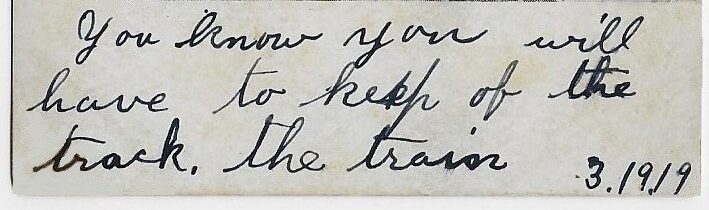 You know you will
have to keep of the
track. the train
3.19.19